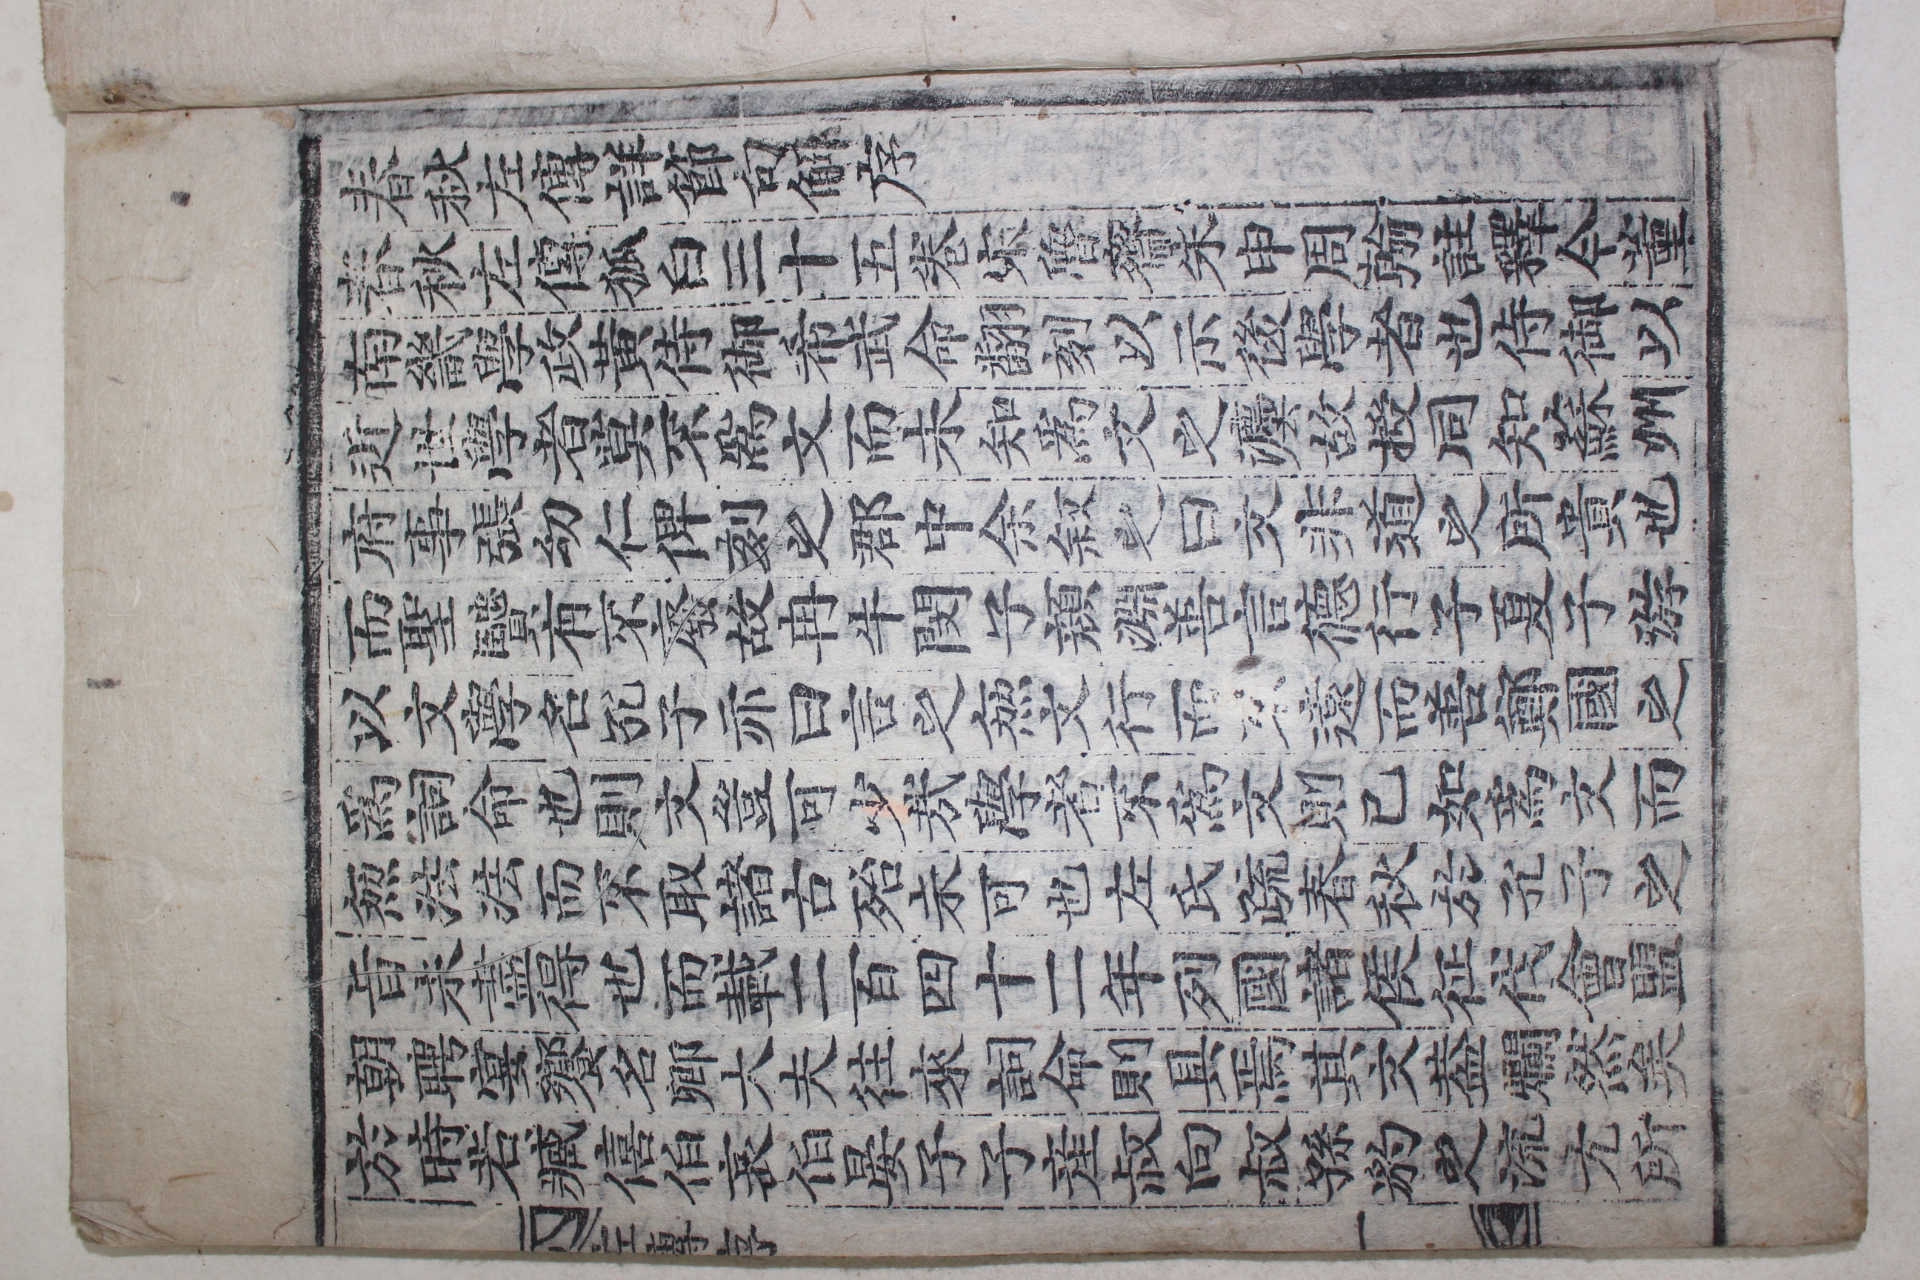 春秋左傳詳節句解序
春秋左傳狐白三十五卷宋魯齋朱申周翰註釋今董
南畿學政黃侍御希武命翻刻以示後學者也侍御以
近世學者莫不爲文而未知爲文之灋故授同知蘇州
府事張幼仁俾刻之郡中余叙之曰文非道之所貴也
而聖賢有不廢故冉牛閔子顔淵善言德行子夏子游
以文學名孔子亦曰言之無文行而不遠而善鄭國之
爲詞命也則文豈可少哉學者不爲文則已如爲文而
無法法而不取諸古殆未可也左氏疏春秋於孔子之
旨未盡得也而載二百四十二年列國諸侯征伐會盟
朝聘宴饗名卿大夫往來詞命則具焉其文葢爛然矣
於時若臧僖伯哀伯晏子子産叔向叔孫豹之流尤所
左傳序
一